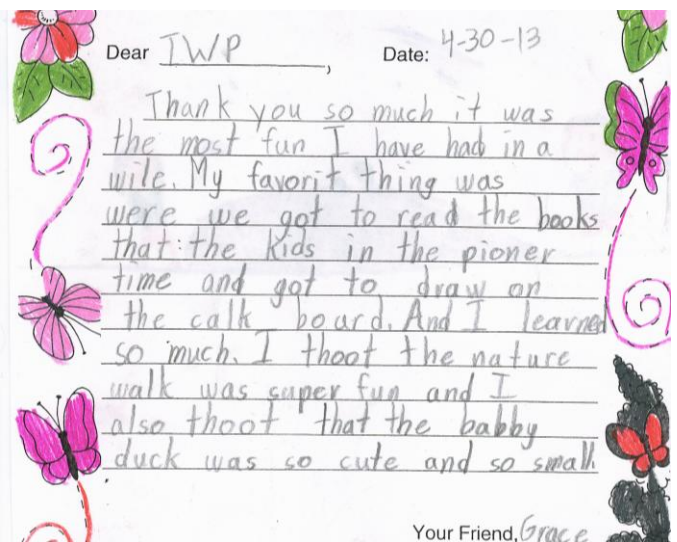 Dear IWP, Date: 4-30-13
Thank you so much it was
the most fun I have had in a
wile. My favorit thing was
were we got to read the books
that the kids in the pioner
time and got to draw on
the calk board. And I learned
so much. I thoot the nature
walk was super fun and I
also thoot that the babby
duck was so cute and so small.
Your Friend, Grace